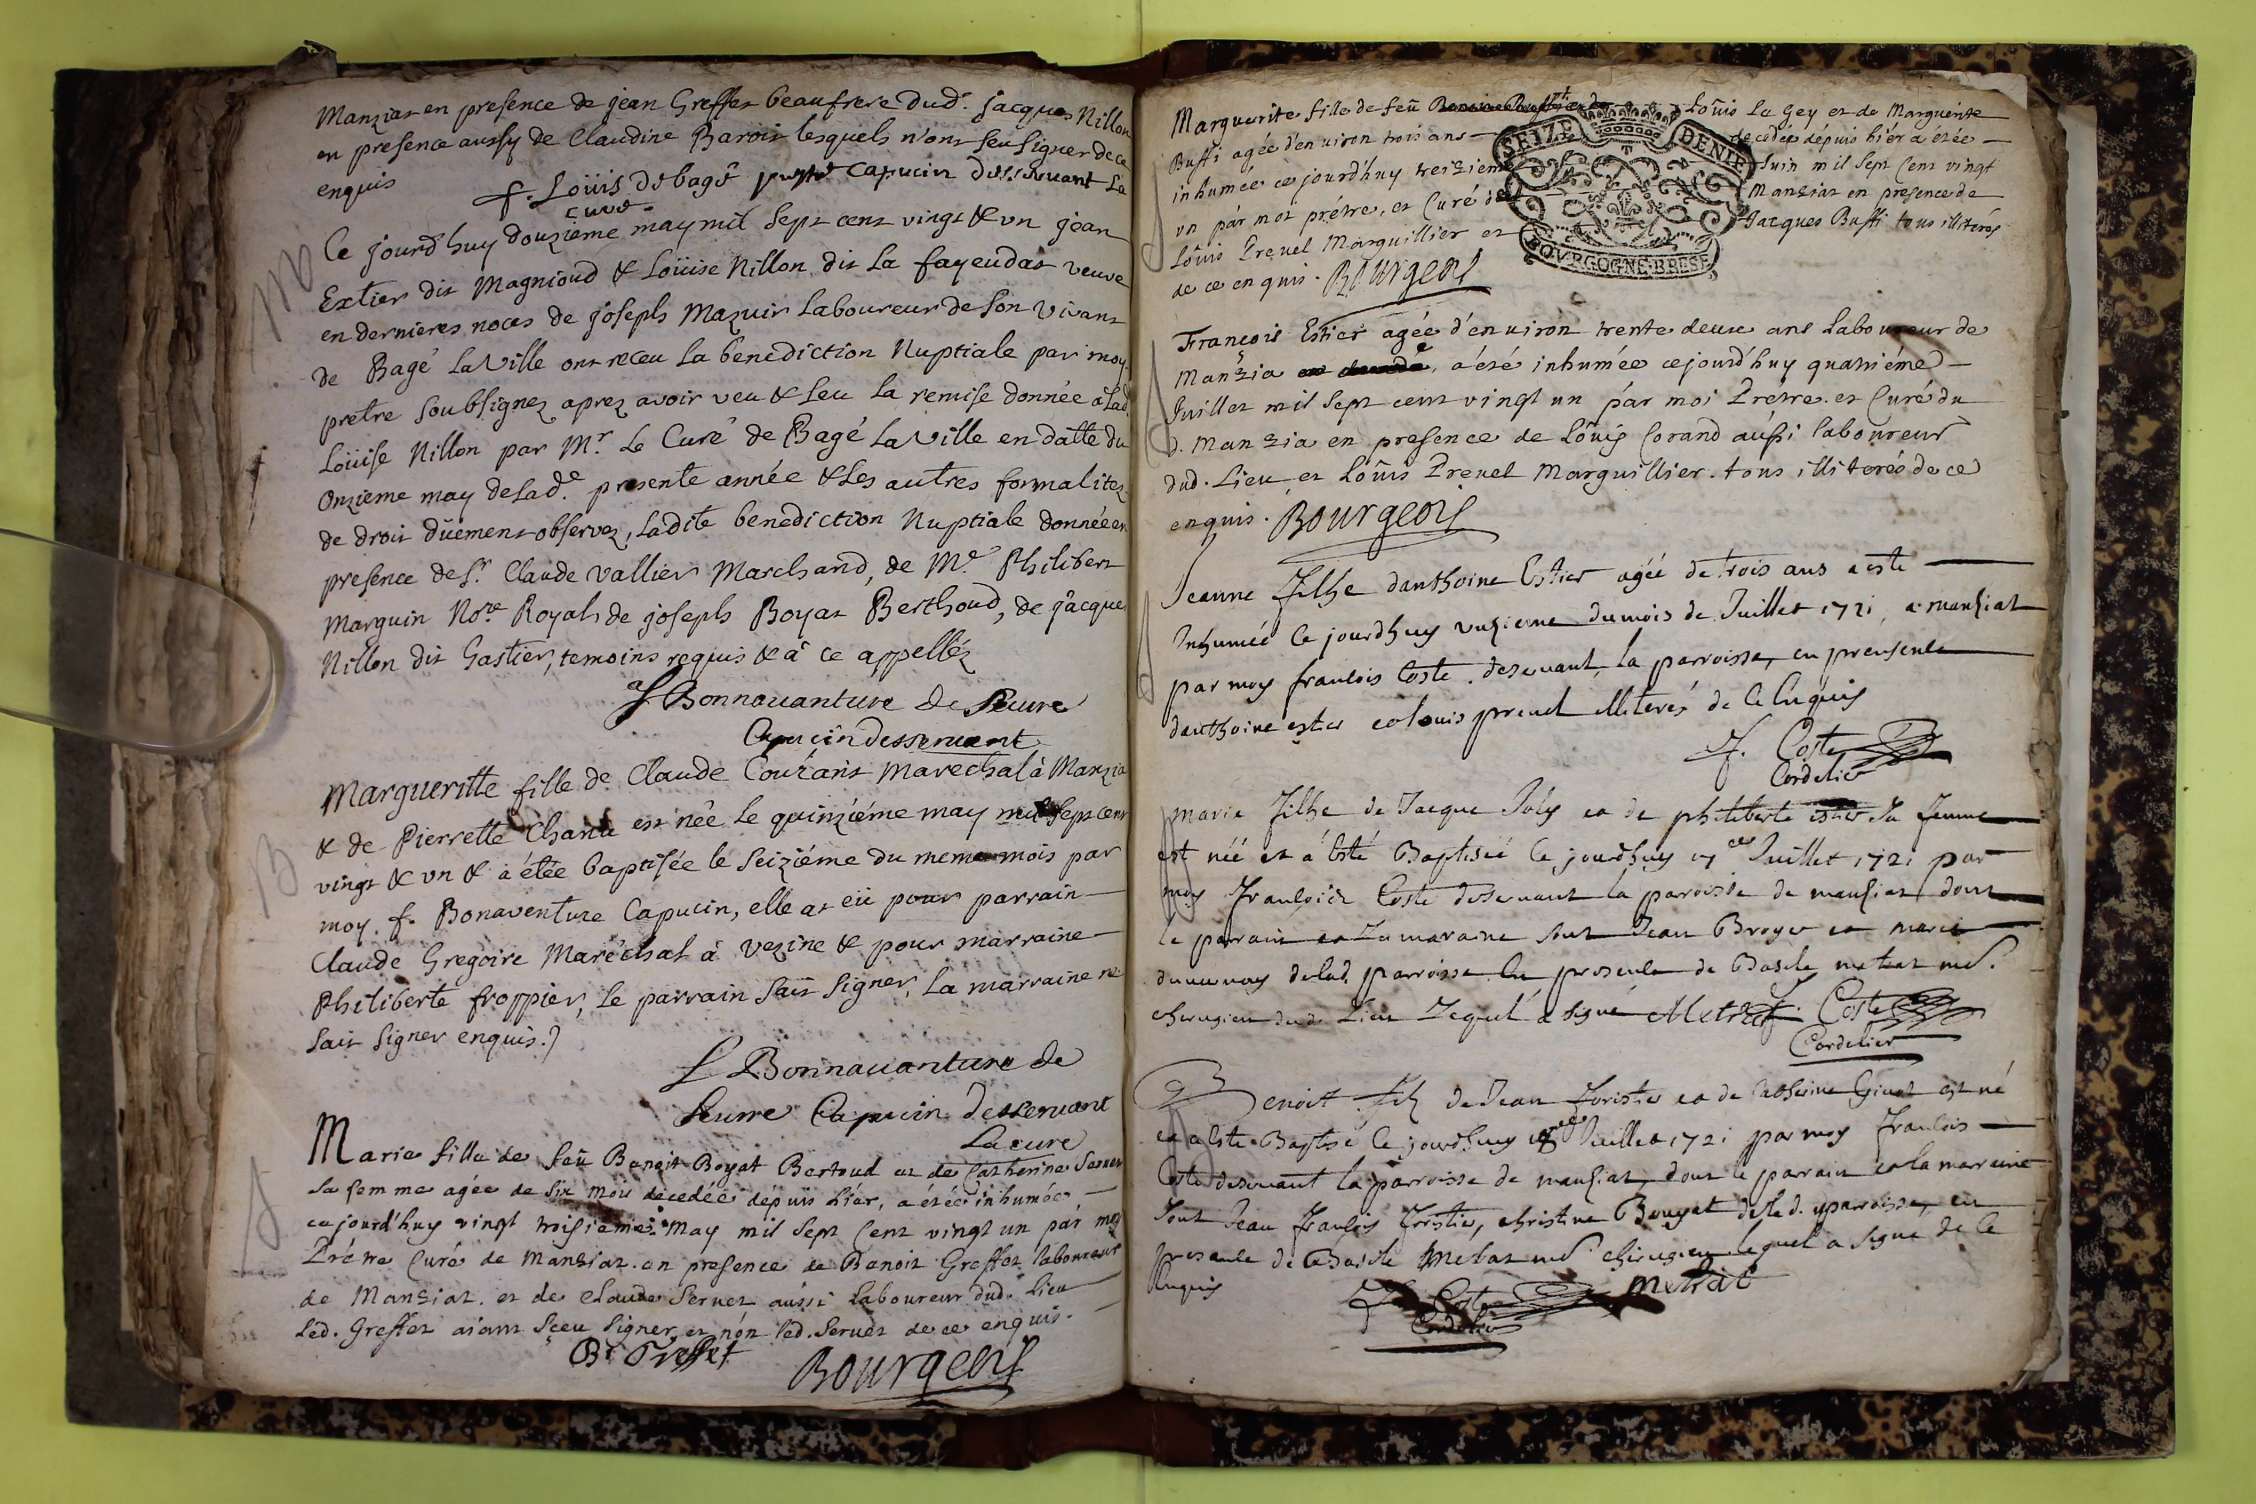 Manziat en presence de jean Greffet beaufrere dud. jacques Nillon
en presence aussy de Claudine Baroit lesquels n'ont sceu signer de ce
enquis
f. Loüis de bagé capucin desservant La
cure
Ce jourdhuy douzieme may mil sept cent vingt & un jean
Extier dit Magnioud & Loüise Nillon dit La fayendat veuve
en dernieres noces de joseph Mazuir Laboureur de son vivant
de Bagé La Ville ont receu La benediction Nuptiale par moy
pretre soubsignez aprez avoir veu & leu La remise donnée à Lad
Loüise Nillon par Mr. Le Curé de Bagé La Ville en datte du
onzieme may de lad.e presente année & Les autres formalitez
de droit düement observez, Ladite benediction Nuptiale donnée en
presence de Sr. Claude Vallier Marchand, de Me. Philibert
Marguin No.re Royal, de joseph Boyat Berthoud, de jacque
Nillon dit Gastier, temoins requis & à ce appellés
f Bonnavanture de Seurre
Capucin desservant
Margueritte fille de Claude Courant Marechal à Manzia
& de Pierrette Chanu est née le quinziéme may mil sept cent
vingt & un & à étée baptisée le seiziéme du meme mois par
moy f. Bonaventure Capucin, elle at eü pour parrain
Claude Gregoire Maréchal à Vezine & pour marraine
Philiberte froppier, le parrain sait signer, la marraine ne
sait signer enquis.)
f Bonnavanture de
Seurre Capucin desservant
La cure
Marie fille de feü Benoit Boyat Bertoud et de Catherine Servet
sa femme agée de six mois décedée dépuis hiér, a étée inhumée
ce jourd'huy vingt troisieme may mil sept cent vingt un pár moy
Prétre Curé de Manziat en presence de Benoit Greffet laboureur
de Manziat. et de Claude Servet aússi laboureur dud. Lieu
Led. Greffet aiant sçeu signer, et nón led. Servet de ce enquis.
Bt Greffet BOURGEOIS
Marguerite fille de feü Loüis La Gey et de Marguerite
Buffi agée d'environ trois ans décédée dépuis hiér a étée
inhumée ce jourd'huy treizieme Juin mil sept cent vingt
un pár moi prétre, et Curé de Manziat en presence de
Loüis Prevel Marguillier et Jacques Buffi tous illiterés
de ce enquis. BOURGEOIS
SEIZE DENIE
BOVRGOGNE·BRESSE
François Estier agée d'environ trente deux ans laboureur de
Manzia a été inhumée ce jourd'huy quatriéme
Juillet mil sept cent vingt un pár moi Prétre et Curé du
d. Manzia en presence de Loüis Corand aússi laboureur
dud. Lieu et Loüis Prevel Marguillier. tous illiterés de ce
enquis. BOURGEOIS
Jeanne filhe danthoine Estier agéé de trois ans a esté
Inhumée ce jourdhuy unzieme du mois de Juillet 1721 a manziat
par moy francois Coste deservant la parroisse, en presence
danthoine estier et louis prevel illiterés de ce Enquis
f. Coste
Cordelier
marie filhe de Jacque Joly et de philiberte estier sa femme
est néé et á esté Baptiséé ce jourdhuy 17 Juillet 1721 par
moy francois Coste desservant la paroisse de manziat dont
le parrain et la maraine sont Jean Broyer et marie
de lad. parroisse En presence de Basile metrat
chirugien dud. Lieu Lequel a signé Metrat f. Coste
Cordelier
Benoit filz de Jean foristier et de Catherine Givet est né
et a esté Baptisé ce jourdhuy 18 Juillet 1721 par moy francois
Coste deservant la parroisse de manziat, dont le parain et la marraine
sont Jean francois foristier, christine Bouyat de lad. parroisse, en
presence de Basile Metrat chirugien lequel a signé de ce
Enquis f. Coste metrat
Cordelier